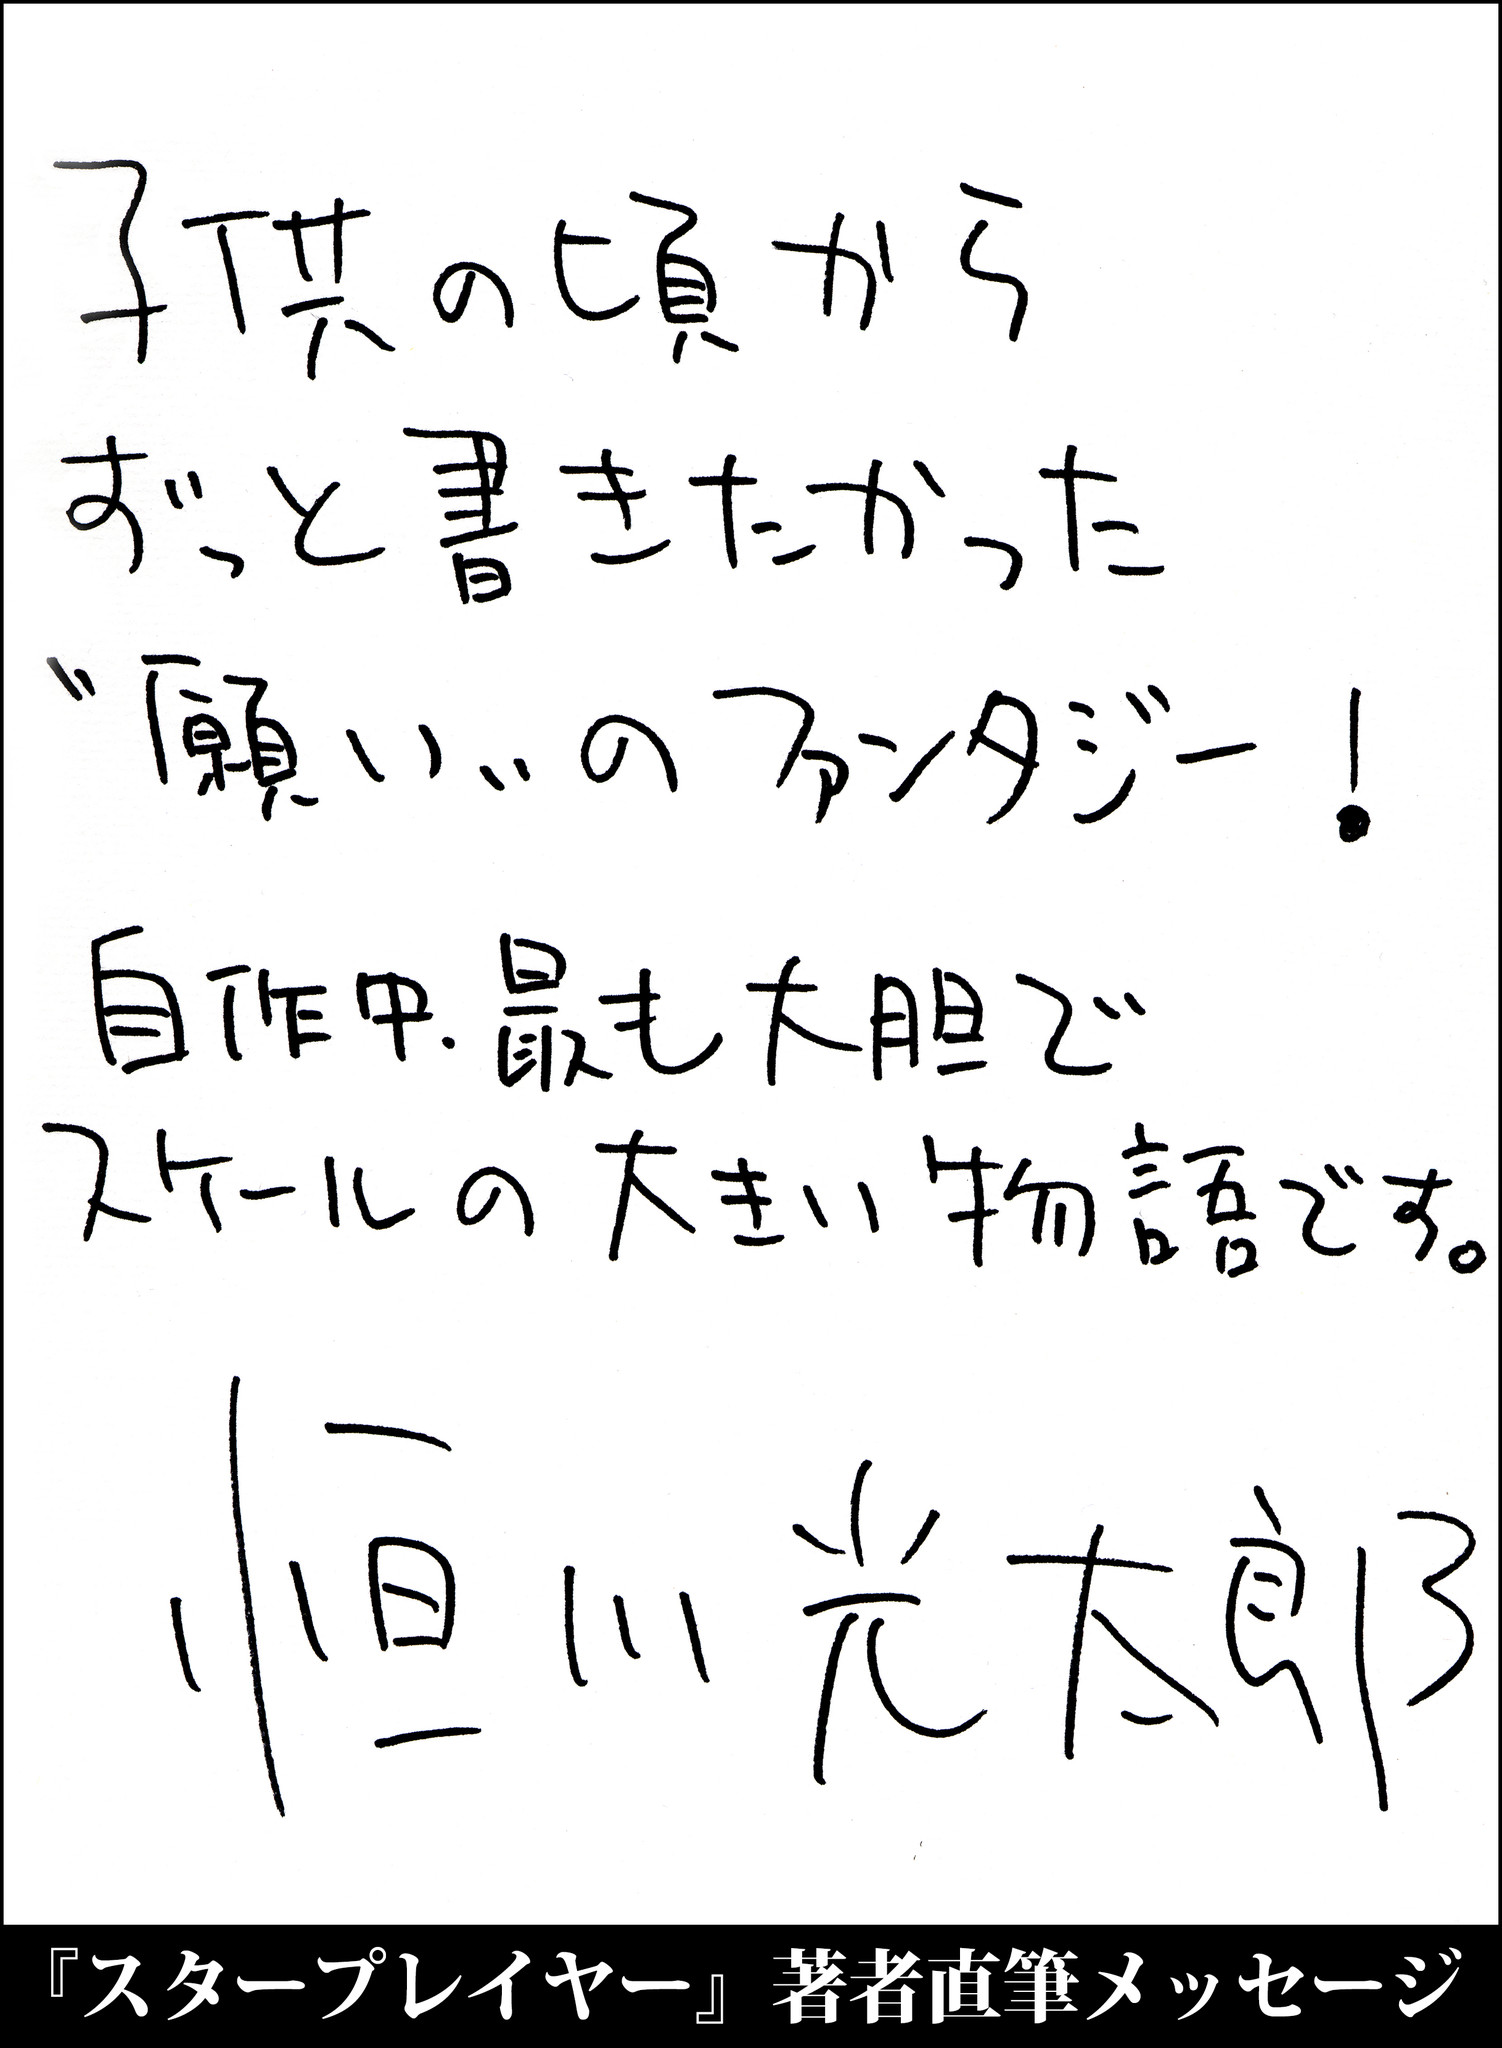 子供の頃から
ずっと書きたかった
〝願い〟のファンタジー！
自作中、最も大胆で
スケールの大きい物語です。
恒川光太郎
『スタープレイヤー』著者直筆メッセージ